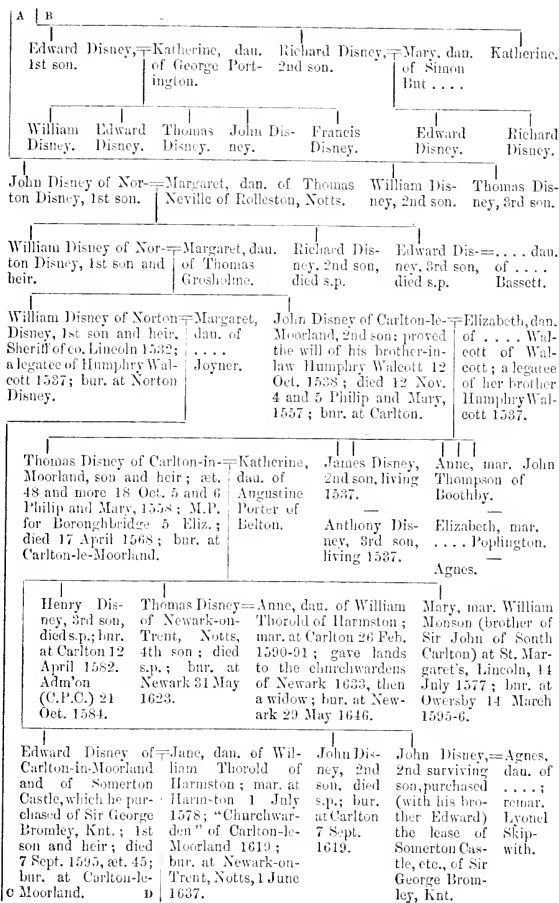 A B
Edward Disney,
1st son.
Katherine, dau.
of George Port-
ington.
Richard Disney,
2nd son.
Mary, dau.
of Simon
But ....
Katherine.
William
Disney.
Edward
Disney.
Thomas
Disney.
John Dis-
ney.
Francis
Disney.
Edward
Disney.
Richard
Disney.
John Disney of Nor-
ton Disney, 1st son.
Margaret, dau. of Thomas
Neville of Rolleston, Notts.
William Dis-
ney, 2nd son.
Thomas Dis-
ney, 3rd son.
William Disney of Nor-
ton Disney, 1st son and
heir.
Margaret, dau.
of Thomas
Grosholme.
Richard Dis-
ney, 2nd son,
died s.p.
Edward Dis-
ney, 3rd son,
died s.p.
= .... dau.
of ....
Bassett.
William Disney of Norton
Disney, 1st son and heir,
Sheriff of co. Lincoln 1532;
a legatee of Humphry Wal-
cott 1537; bur. at Norton
Disney.
Margaret,
dau. of
....
Joyner.
John Disney of Carlton-le-
Moorland, 2nd son; proved
the will of his brother-in-
law Humphry Walcott 12
Oct. 1538; died 12 Nov.
4 and 5 Philip and Mary,
1557; bur. at Carlton.
Elizabeth, dau.
of .... Wal-
cott of Wal-
cott; a legatee
of her brother
Humphry Wal-
cott 1537.
Thomas Disney of Carlton-in-
Moorland, son and heir; æt.
48 and more 18 Oct. 5 and 6
Philip and Mary, 1558; M.P.
for Boroughbridge 5 Eliz.;
died 17 April 1568; bur. at
Carlton-le-Moorland.
Katherine,
dau. of
Augustine
Porter of
Belton.
James Disney,
2nd son, living
1537.
—
Anthony Dis-
ney, 3rd son,
living 1537.
Anne, mar. John
Thompson of
Boothby.
—
Elizabeth, mar.
.... Poplington.
—
Agnes.
Henry Dis-
ney, 3rd son,
died s.p.; bur.
at Carlton 12
April 1582.
Adm'on
(C.P.C.) 21
Oct. 1584.
Thomas Disney
of Newark-on-
Trent, Notts,
4th son; died
s.p.; bur. at
Newark 31 May
1623.
= Anne, dau. of William
Thorold of Harmston;
mar. at Carlton 26 Feb.
1590-91; gave lands
to the churchwardens
of Newark 1633, then
a widow; bur. at New-
ark 29 May 1646.
Mary, mar. William
Monson (brother of
Sir John of South
Carlton) at St. Mar-
garet's, Lincoln, 14
July 1577; bur. at
Owersby 14 March
1595-6.
Edward Disney of
Carlton-in-Moorland
and of Somerton
Castle, which he pur-
chased of Sir George
Bromley, Knt.; 1st
son and heir; died
7 Sept. 1595, æt. 45;
bur. at Carlton-le-
C Moorland. D
Jane, dau. of Wil-
liam Thorold of
Harmston; mar. at
Harmston 1 July
1578; "Churchwar-
den" of Carlton-le-
Moorland 1619;
bur. at Newark-on-
Trent, Notts, 1 June
1637.
John Dis-
ney, 2nd
son, died
s.p.; bur.
at Carlton
7 Sept.
1619.
John Disney,
2nd surviving
son, purchased
(with his bro-
ther Edward)
the lease of
Somerton Cas-
tle, etc., of Sir
George Brom-
ley, Knt.
= Agnes,
dau. of
....;
remar.
Lyonel
Skip-
with.